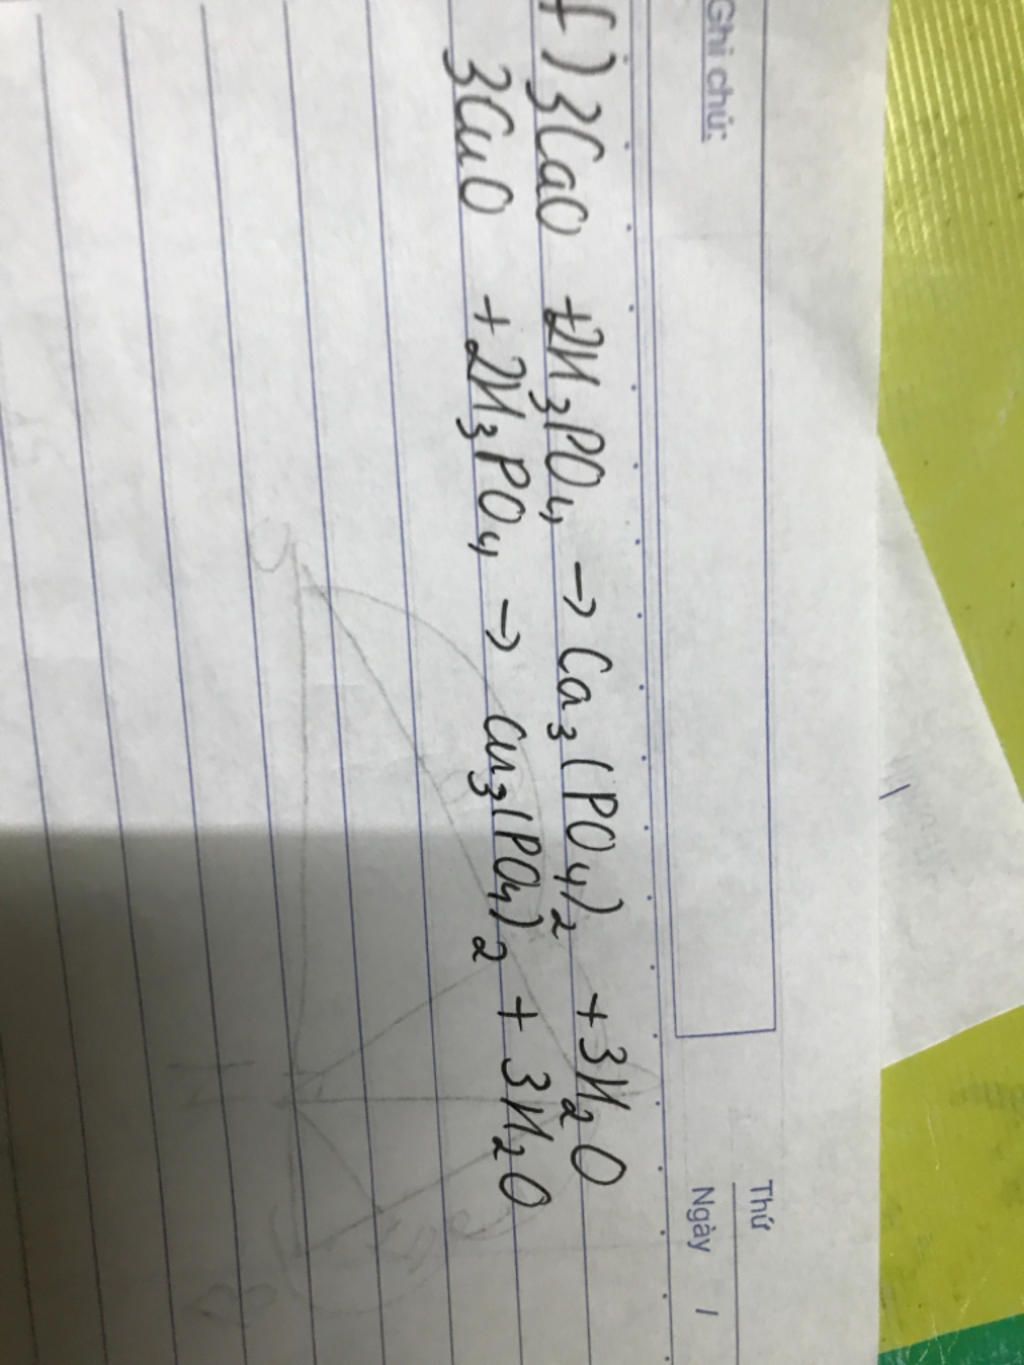 Ghi chú:
Thứ
Ngày /
f) 3CaO + 2H₃PO₄ → Ca₃(PO₄)₂ + 3H₂O
3CuO + 2H₃PO₄ → Cu₃(PO₄)₂ + 3H₂O